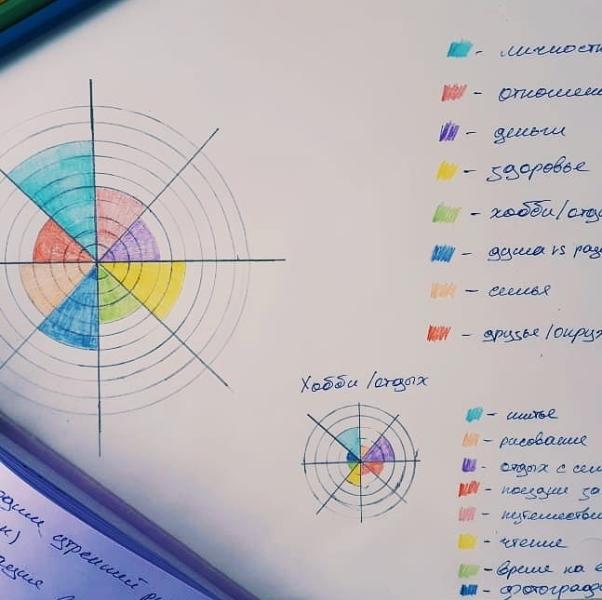 - личност
- отношен
- деньги
- здоровье
- хобби/отды
- душа vs раз
- семья
- друзья/окруж
Хобби/отдых
- шитье
- рисование
- отдых с сем
- поездки за
- путешестви
- чтение
- время на
- фотограф